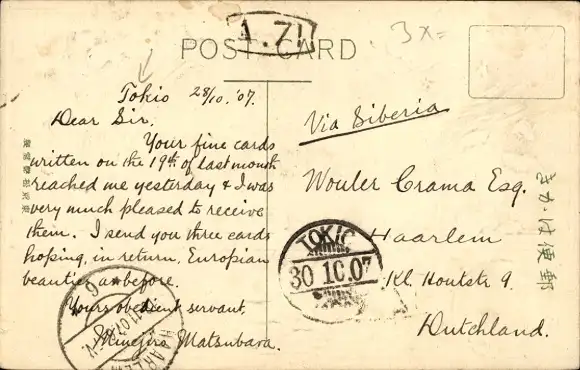 1.Z!
POST CARD
3x=
Tokio 28/10.'07.
Dear Sir.
Your fine cards
written on the 19th of last month
reached me yesterday & I was
very much pleased to receive
them. I send you three cards
hoping, in return, Europian
beauties as before.
Yours obedient servant,
Minejiro Matsubara.
Via Siberia
Wouler Crama Esq.
Haarlem
Kl. Houtstr 9.
Dutchland.
TOKIO
30 10 07
HAARLEM
きかは便郵